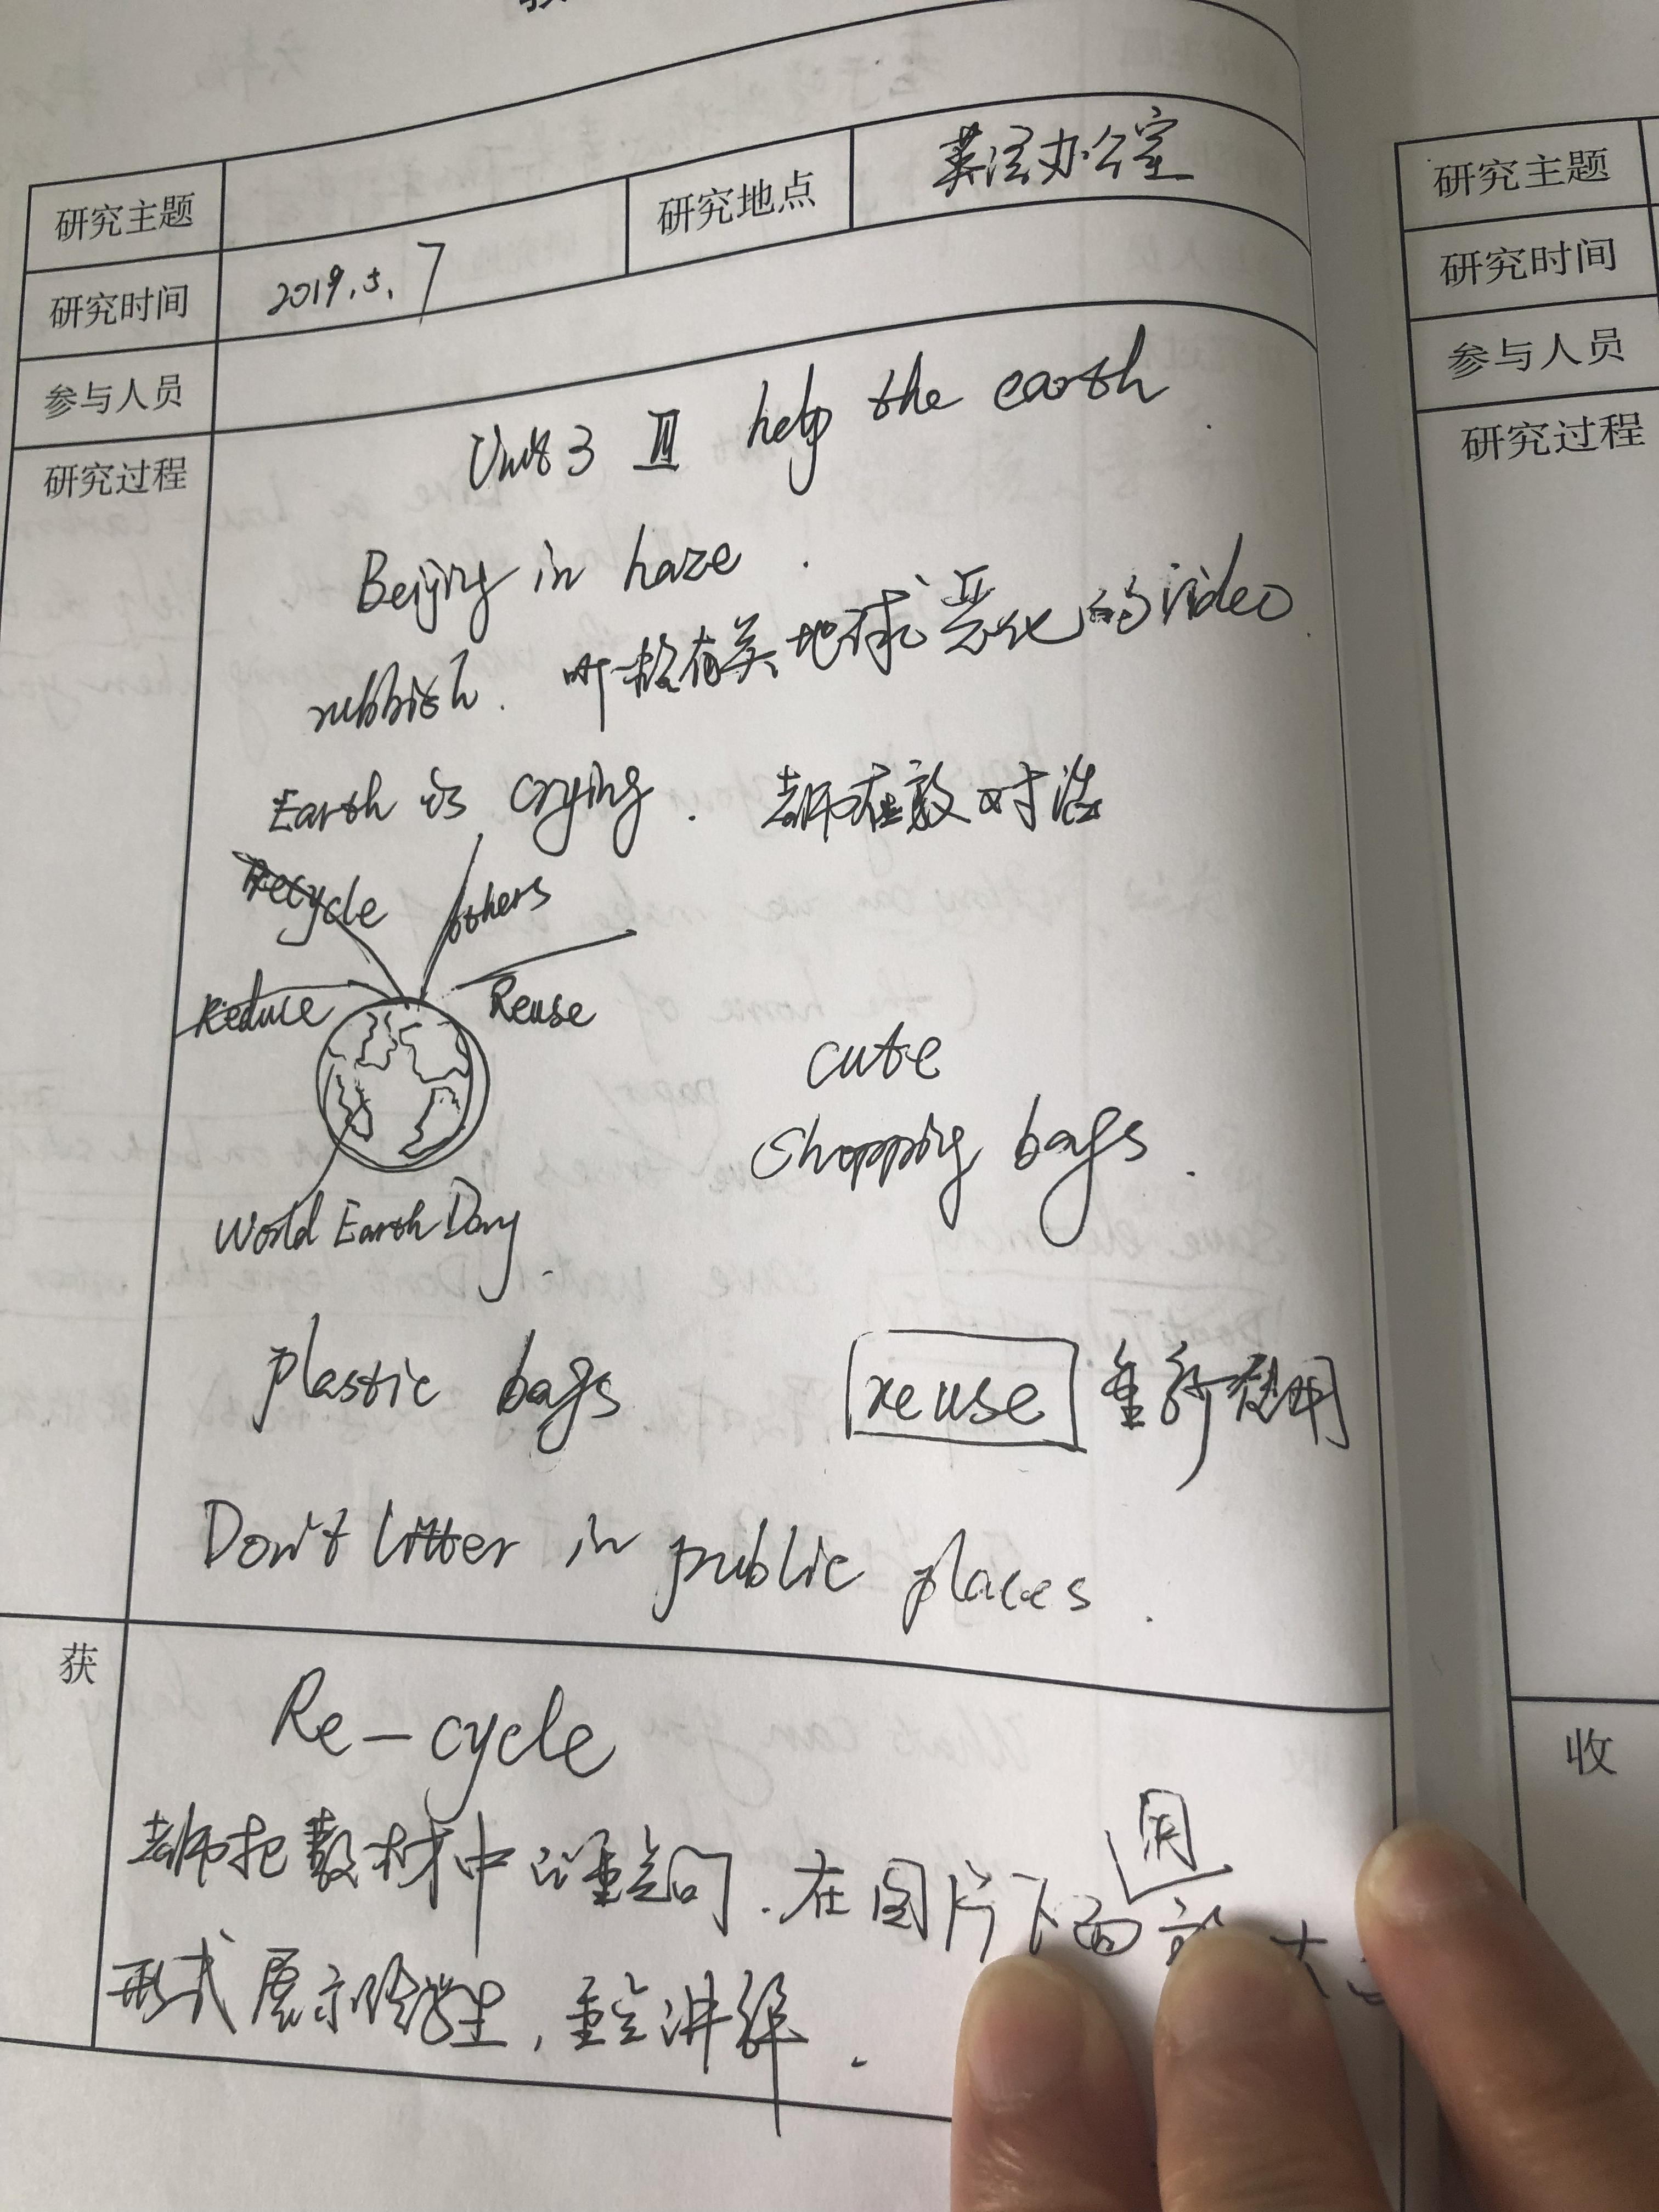 研究主题
研究地点 英语办公室
研究时间 2019.5.7
参与人员
研究过程
Unit 3 Ⅲ help the earth
Beijing in haze.
rubbish. 听一校有关地球恶化的video.
Earth is crying. 老师在教对话
Recycle others
Reduce Reuse
cute
shopping bags.
World Earth Day.
plastic bags reuse 重新使用
Don't litter in public places.
获
Re-cycle
老师把教材中的重点句.在图片下面
用
形式展示给学生,重点讲解.
研究主题
研究时间
参与人员
研究过程
收